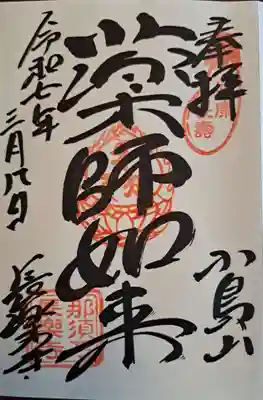 奉拝
小鳥山
薬師如来
令和七年
三月八日
長楽寺
那須
長楽寺